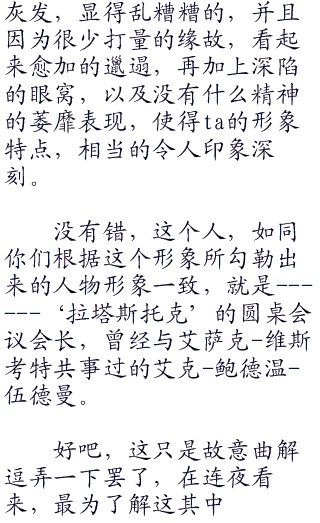 灰发，显得乱糟糟的，并且
因为很少打量的缘故，看起
来愈加的邋遢，再加上深陷
的眼窝，以及没有什么精神
的萎靡表现，使得ta的形象
特点，相当的令人印象深
刻。
没有错，这个人，如同
你们根据这个形象所勾勒出
来的人物形象一致，就是---
---‘拉塔斯托克’的圆桌会
议会长，曾经与艾萨克-维斯
考特共事过的艾克-鲍德温-
伍德曼。
好吧，这只是故意曲解
逗弄一下罢了，在连夜看
来，最为了解这其中